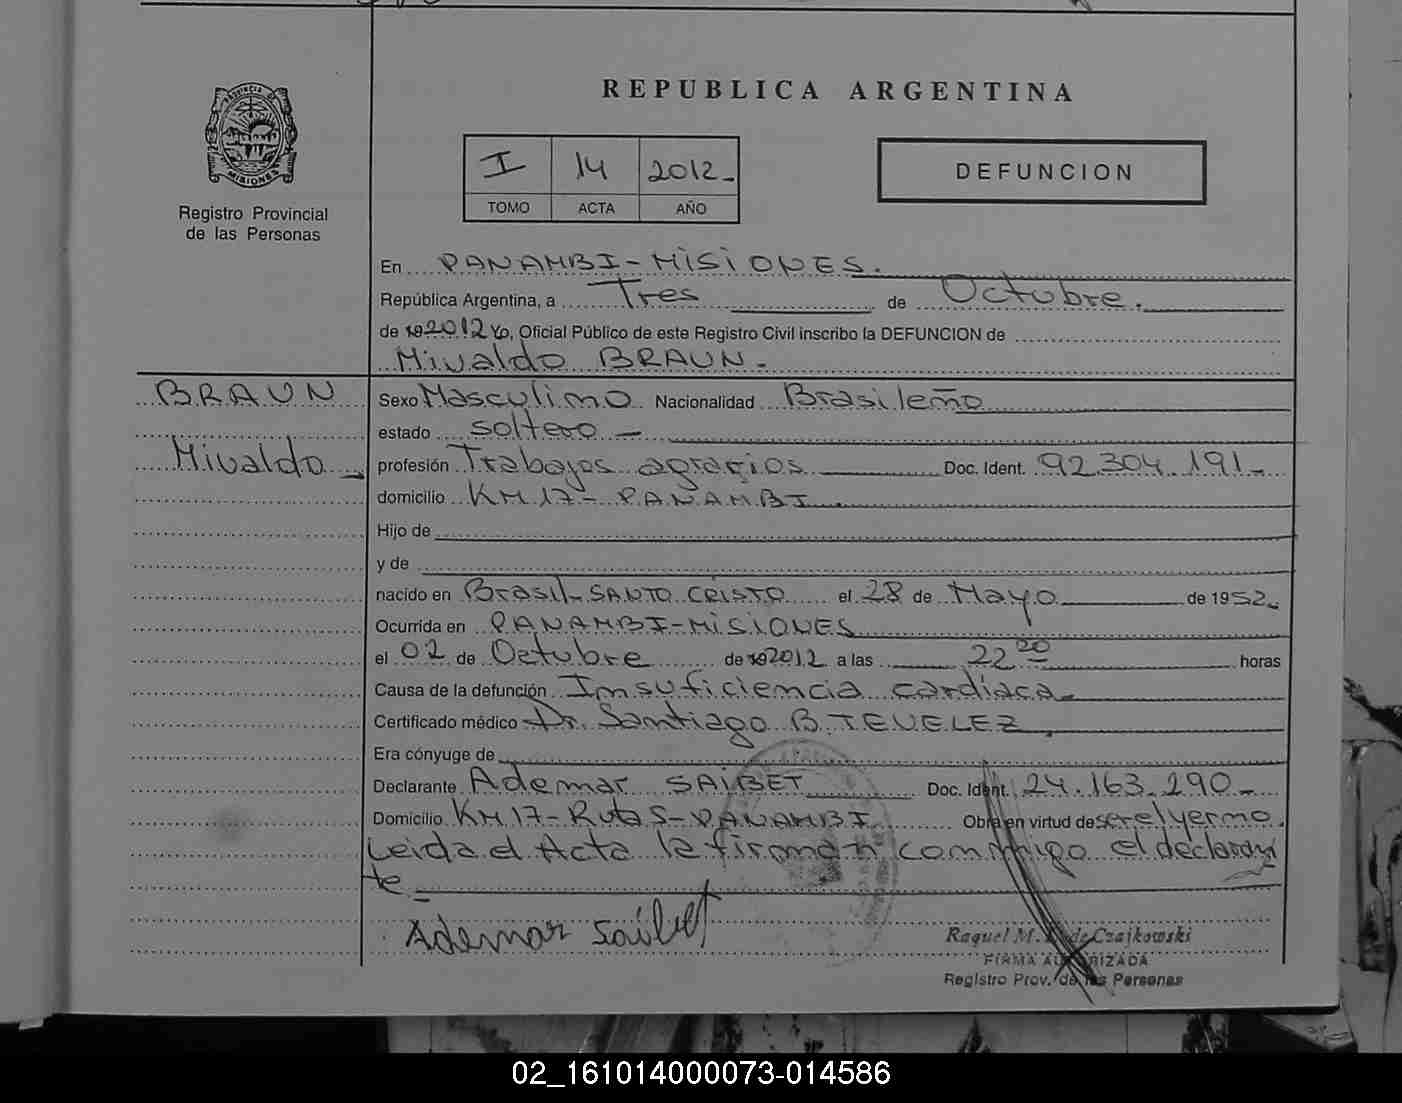 REPUBLICA ARGENTINA
PROVINCIA DE
MISIONES
Registro Provincial
de las Personas
I 14 2012-
TOMO ACTA AÑO
DEFUNCION
En PANAMBI-MISIONES.
República Argentina, a Tres de Octubre.
de 19 2012 Yo, Oficial Público de este Registro Civil inscribo la DEFUNCION de
Nivaldo BRAUN.
BRAUN
Nivaldo
Sexo Masculino Nacionalidad Brasileño
estado soltero -
profesión Trabajos agrarios Doc. Ident. 92.304.191-
domicilio KM 17-PANAMBI
Hijo de
y de
nacido en Brasil-SANTO CRISTO el 28 de Mayo de 1952.
Ocurrida en PANAMBI-MISIONES
el 02 de Octubre de 19 2012 a las 22 20 horas
Causa de la defunción Insuficiencia cardiaca
Certificado médico Dr. Santiago B. TEVELEZ.
Era cónyuge de
Declarante Ademar SAIBET Doc. Ident. 24.163.290-
Domicilio KM 17-Ruta 5-PANAMBI Obra en virtud de ser el yerno.
Leida el Acta la firman conmigo el declaran
te
Ademar Saibet
Raquel M. de Czajkowski
FIRMA AUTORIZADA
Registro Prov. de las Personas
02_161014000073-014586